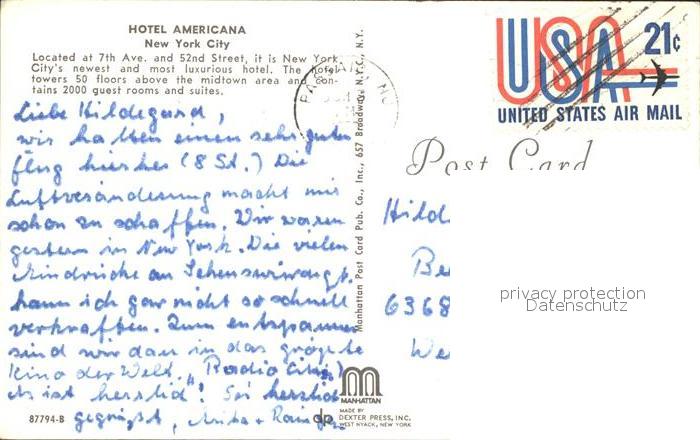 HOTEL AMERICANA
New York City
Located at 7th Ave. and 52nd Street, it is New York
City's newest and most luxurious hotel. The hotel
towers 50 floors above the midtown area and con-
tains 2000 guest rooms and suites.
Liebe Hildegard,
wir hatten einen sehr guten
flug hierher (8 St.) Die
Luftveränderung macht mir
schon zu schaffen. Wir waren
gestern in New York. Die vielen
Eindrücke an Sehenswürdigk.
kann ich gar nicht so schnell
verkraften. Zum entspannen
sind wir dan in das größte
Kino der Welt, "Radio City"
es ist herrlich! Sei herzlich
gegrüßt, Anita +
87794-B
Manhattan Post Card Pub. Co., Inc., 657 Broadway, N.Y.C., N.Y.
MANHATTAN
MADE BY
DEXTER PRESS, INC.
WEST NYACK, NEW YORK
USA 21¢
UNITED STATES AIR MAIL
Post Card
Hild
Be
6368
We
privacy protection
Datenschutz